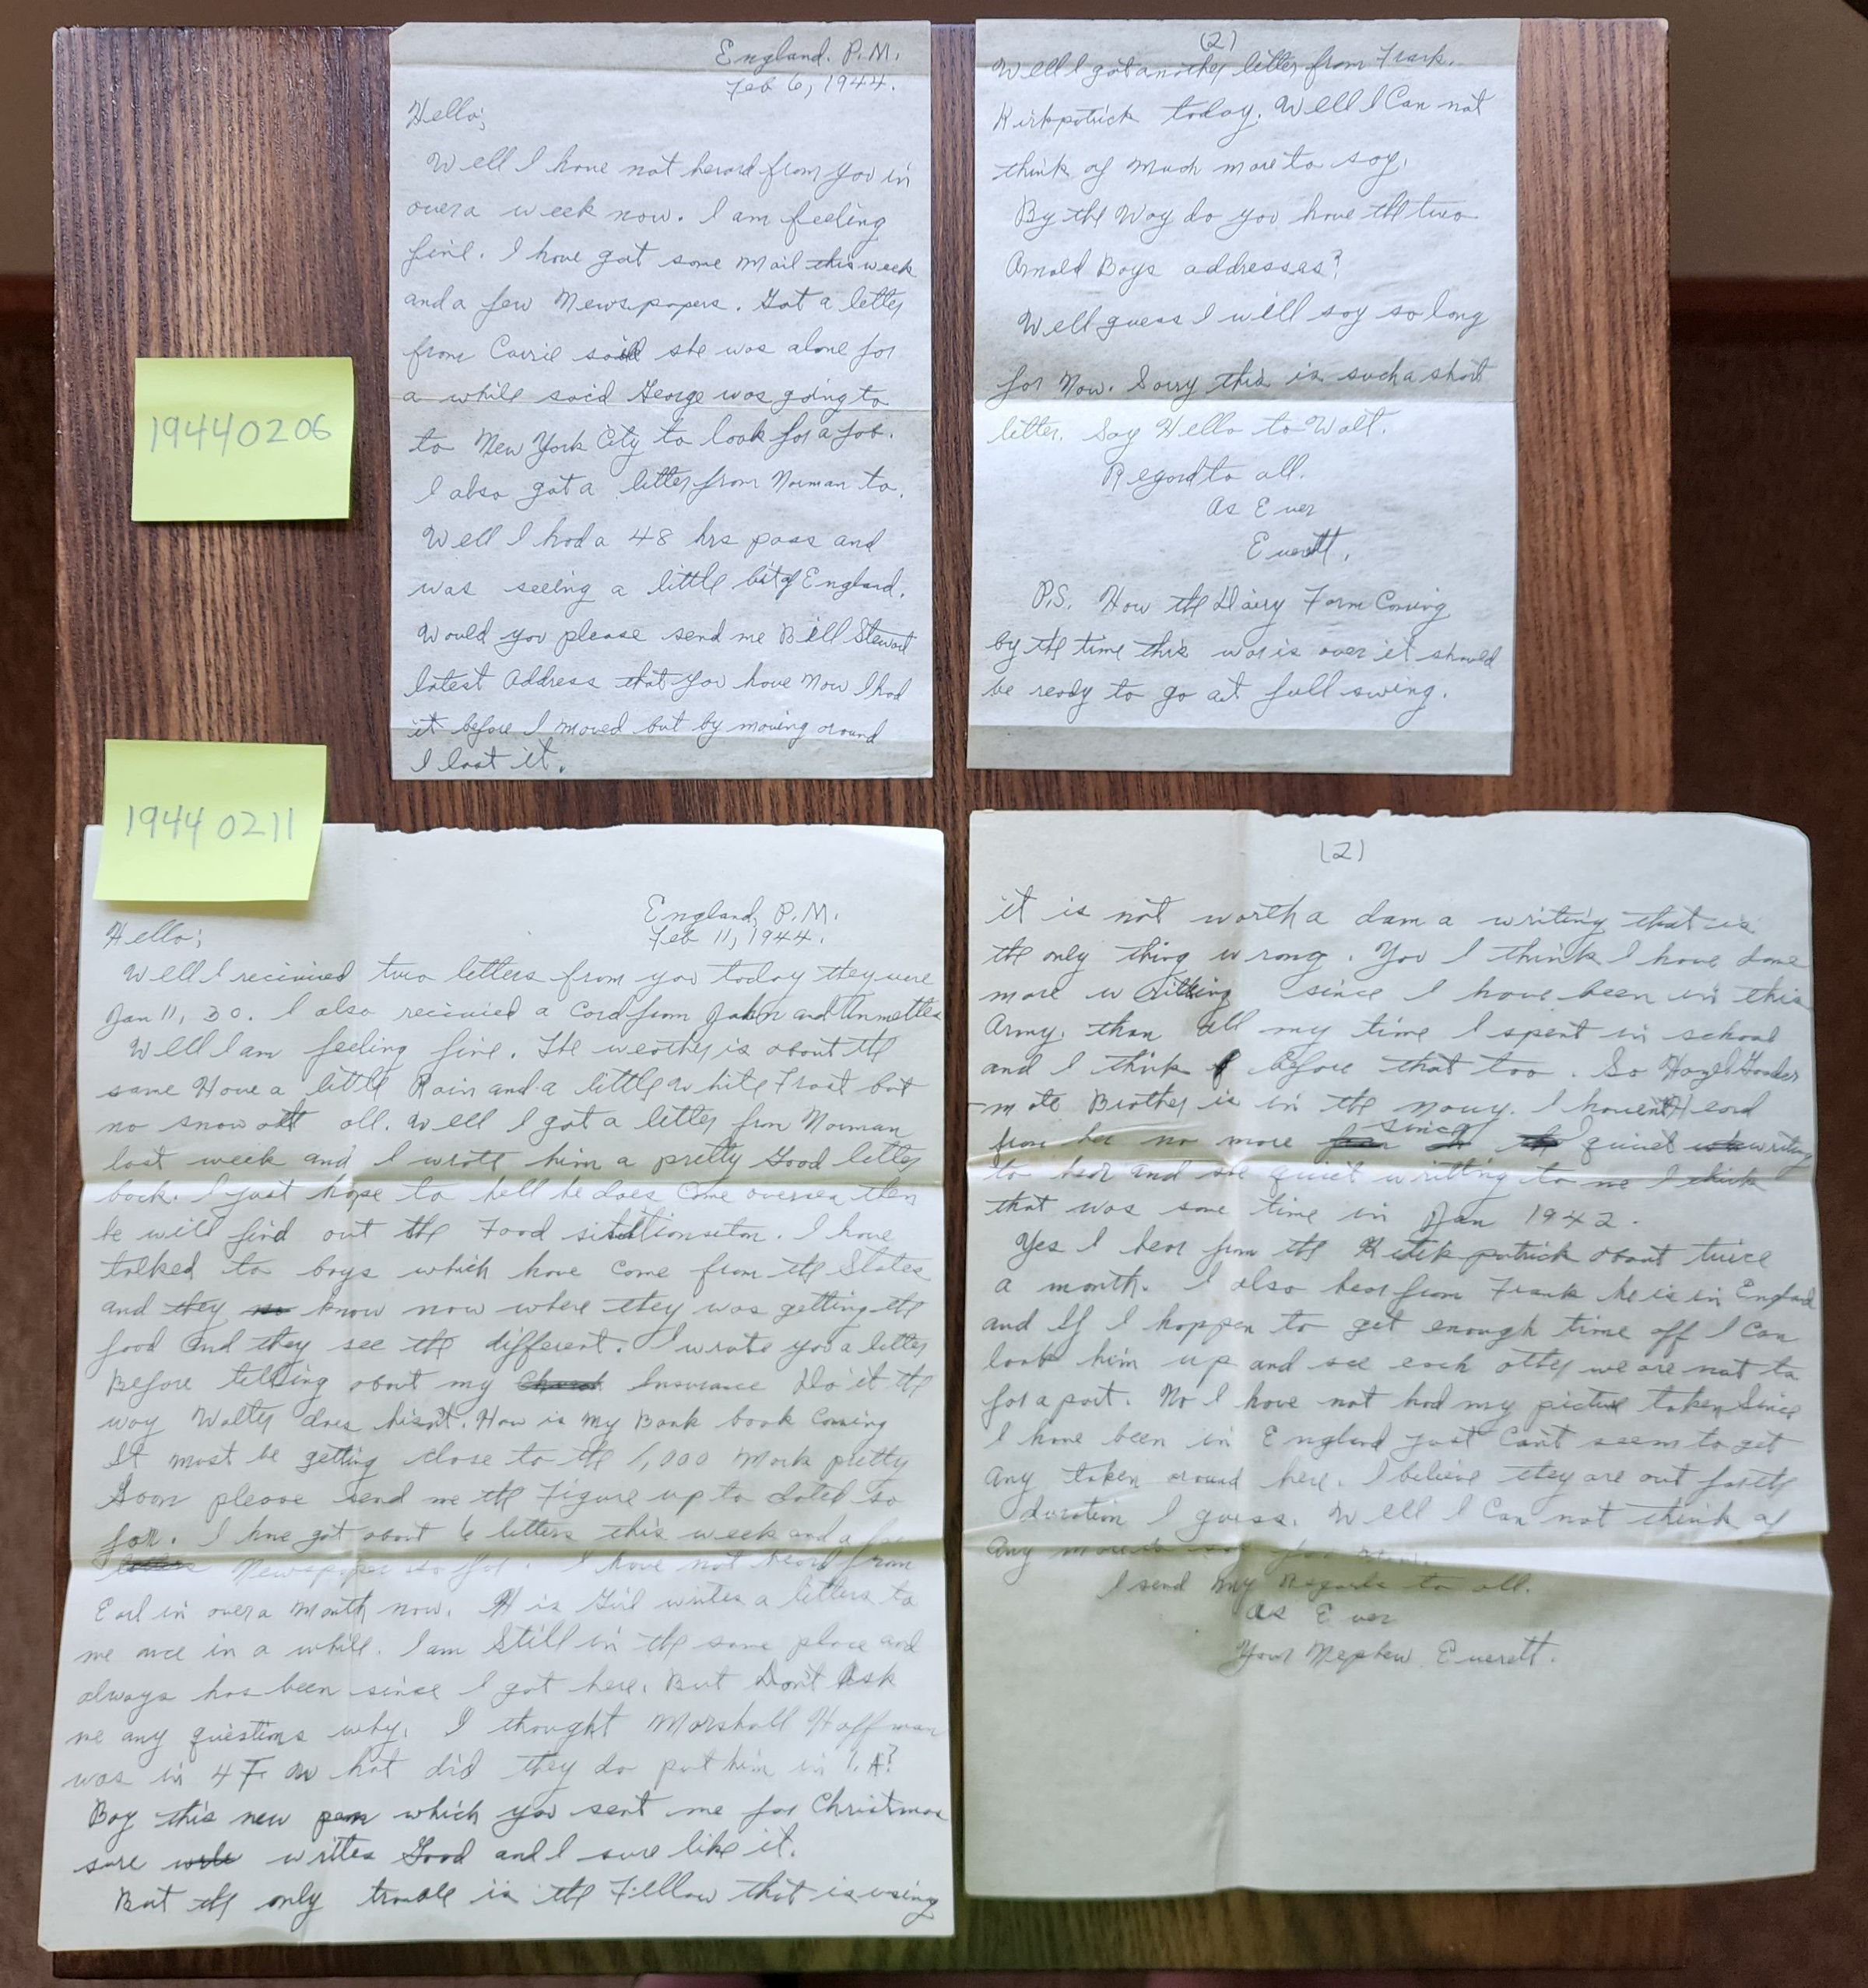 19440206
England. P.M.
Feb 6, 1944.
Hello;
Well I have not herard from you in
over a week now. I am feeling
fine. I have got some Mail this week
and a few Newspapers. Got a letter
from Carrie said she was alone for
a while said George was going to
to New York City to look for a job.
I also got a letter from Norman to.
Well I had a 48 hrs pass and
was seeing a little bit of England.
Would you please send me Bill Stewart
latest Address that you have Now I had
it before I moved but by moving around
I lost it.
(2)
Well I got another letter from Frank.
Kirkpatrick today. Well I Can not
think of Much more to say.
By the Way do you have the two
Arnold Boys addresses?
Well guess I will say so long
for Now. Sorry this is such a short
letter. Say Hello to Walt.
Regard to all.
As Ever
Everett.
P.S. How the Dairy Farm Coming
by the time this war is over it should
be ready to go at full swing.
19440211
England, P.M.
Feb 11, 1944.
Hello;
Well I recieived two letters from you today they were
Jan 11, 30. I also recieived a Card from John and Annettes
Well I am feeling fine. The weather is about the
same Have a little Rain and a little white Frost but
no snow att all. Well I got a letter from Norman
last week and I wrote him a pretty Good letter
back. I just hope to hell he does Come oversea then
he will find out the Food . I have
talked to boys which have Come from the States
and they know now where they was getting the
food and they see the different. I wrote you a letter
Before telling about my Insurance Do it the
way Walter does hisn't. How is My Bank book Coming
It must be getting close to the 1,000 Mark pretty
Soon please send me the Figure up to dated so
far. I have got about 6 letters this week and a few
Newspaper so far. I have not heard from
Earl in over a Month now. His Girl writes a letters to
me once in a while. I am Still in the same place and
always has been since I got here. But Don't Ask
me any questions why. I thought Marshall Hoffman
was in 4 F. What did they do put him in 1. A?
Boy this new pen which you sent me for Christmas
sure writes Good and I sure like it.
But the only trouble is the Fellow that is using
(2)
it is not worth a dam a writing that is
the only thing wrong. You I think I have done
more writting since I have been in this
Army. than all my time I spent in school
and I think before that too. So Hazel
Brother is in the navy. I haven't Heard
from her no more since I quiet writing
to hear and she quiet writting to me I think
that was some time in Jan 1942.
Yes I hear from the Kirkpatrick about twice
a month. I also hear from Frank he is in England
and If I happen to get enough time off I Can
look him up and see each other we are not to
far a part. No I have not had my picture taken Since
I have been in England just Can't seem to get
Any taken around here. I believe they are out for the
duration I guess. Well I Can not think of
Any more to say for now.
I send my Regards to all.
As Ever
Your Nephew Everett.